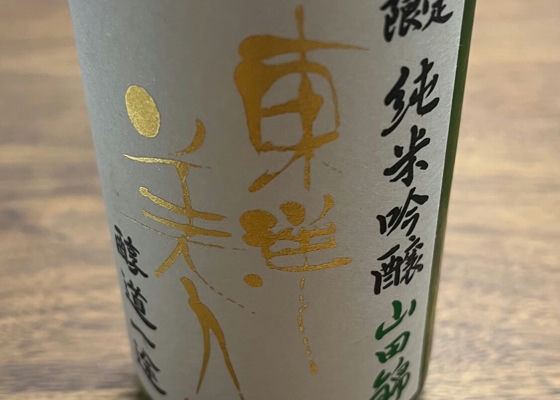 限定 純米吟醸 山田錦
東洋
美人
醇道一途